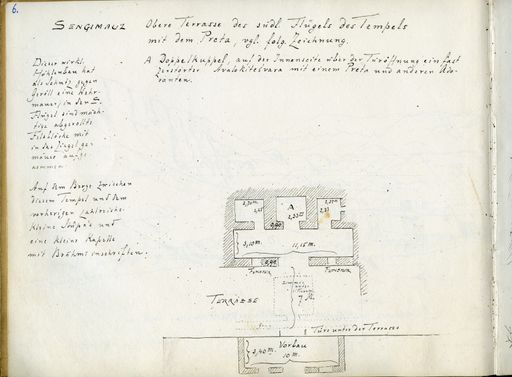 6.
SENGIMAUZ
Obere Terrasse des südl. Flügels des Tempels
mit dem Preta, vgl. folg. Zeichnung.
A Doppelkuppel, auf der Innenseite über der Türöffnung ein fast
zerstörter Avalokiteśvara mit einem Preta und anderen Ado-
ranten.
Dieser wirkl.
Höhlenbau hat
als Schutz gegen
Geröll eine Wehr-
mauer, in den S.
Flügel sind mäch-
tige abgerollte
Felsblöcke mit
in das Ziegelge-
mäuer aufge-
nommen.
Auf dem Berge zwischen
diesem Tempel und dem
vorherigen zahlreiche
kleine Stūpas und
eine kleine Kapelle
mit Brāhmīinschriften.
A
3,10 m.
11,15 m.
Fenster
Fenster
TERRASSE
7 m.
Türe unter der Terrasse
Vorbau
3,40 m.
10 m.